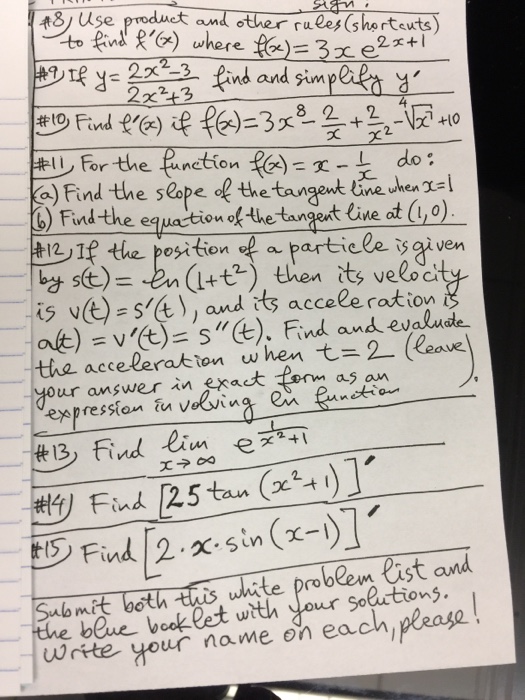 sign!
#8) Use product and other rules (shortcuts)
to find f'(x) where f(x) = 3x e^{2x+1}
#9) If y = \frac{2x²-3}{2x²+3} find and simplify y'
#10) Find f'(x) if f(x) = 3x⁸ - \frac{2}{x} + \frac{2}{x²} - \sqrt[4]{x} + 10
#11) For the function f(x) = x - \frac{1}{x} do:
(a) Find the slope of the tangent line when x=1
(b) Find the equation of the tangent line at (1,0).
#12) If the position of a particle is given
by s(t) = ln (1+t²) then its velocity
is v(t) = s'(t), and its acceleration is
a(t) = v'(t) = s''(t). Find and evaluate
the acceleration when t = 2 (leave
your answer in exact form as an
expression involving ln function).
#13) Find lim_{x→∞} e^{\frac{1}{x²+1}}
#14) Find [25 tan (x²+1)]'
#15) Find [2·x·sin (x-1)]'
Submit both this white problem list and
the blue booklet with your solutions.
Write your name on each, please!